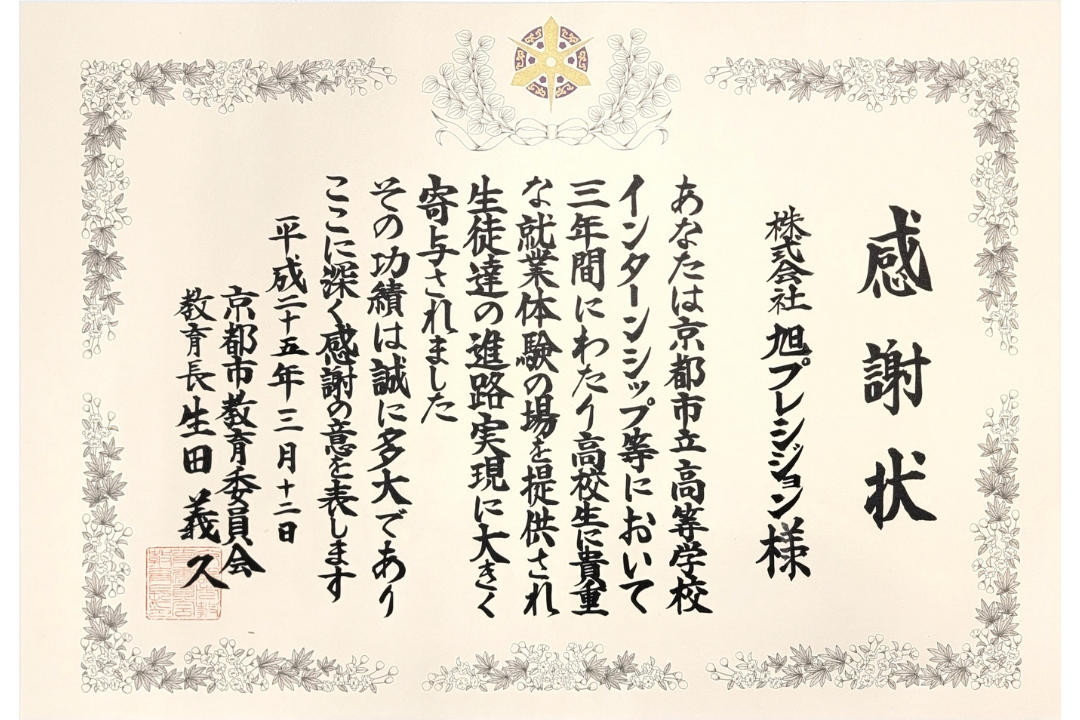 感謝状
株式会社 旭プレシジョン様
あなたは京都市立高等学校
インターンシップ等において
三年間にわたり高校生に貴重
な就業体験の場を提供され
生徒達の進路実現に大きく
寄与されました
その功績は誠に多大であり
ここに深く感謝の意を表します
平成二十五年三月十二日
京都市教育委員会
教育長 生田義久